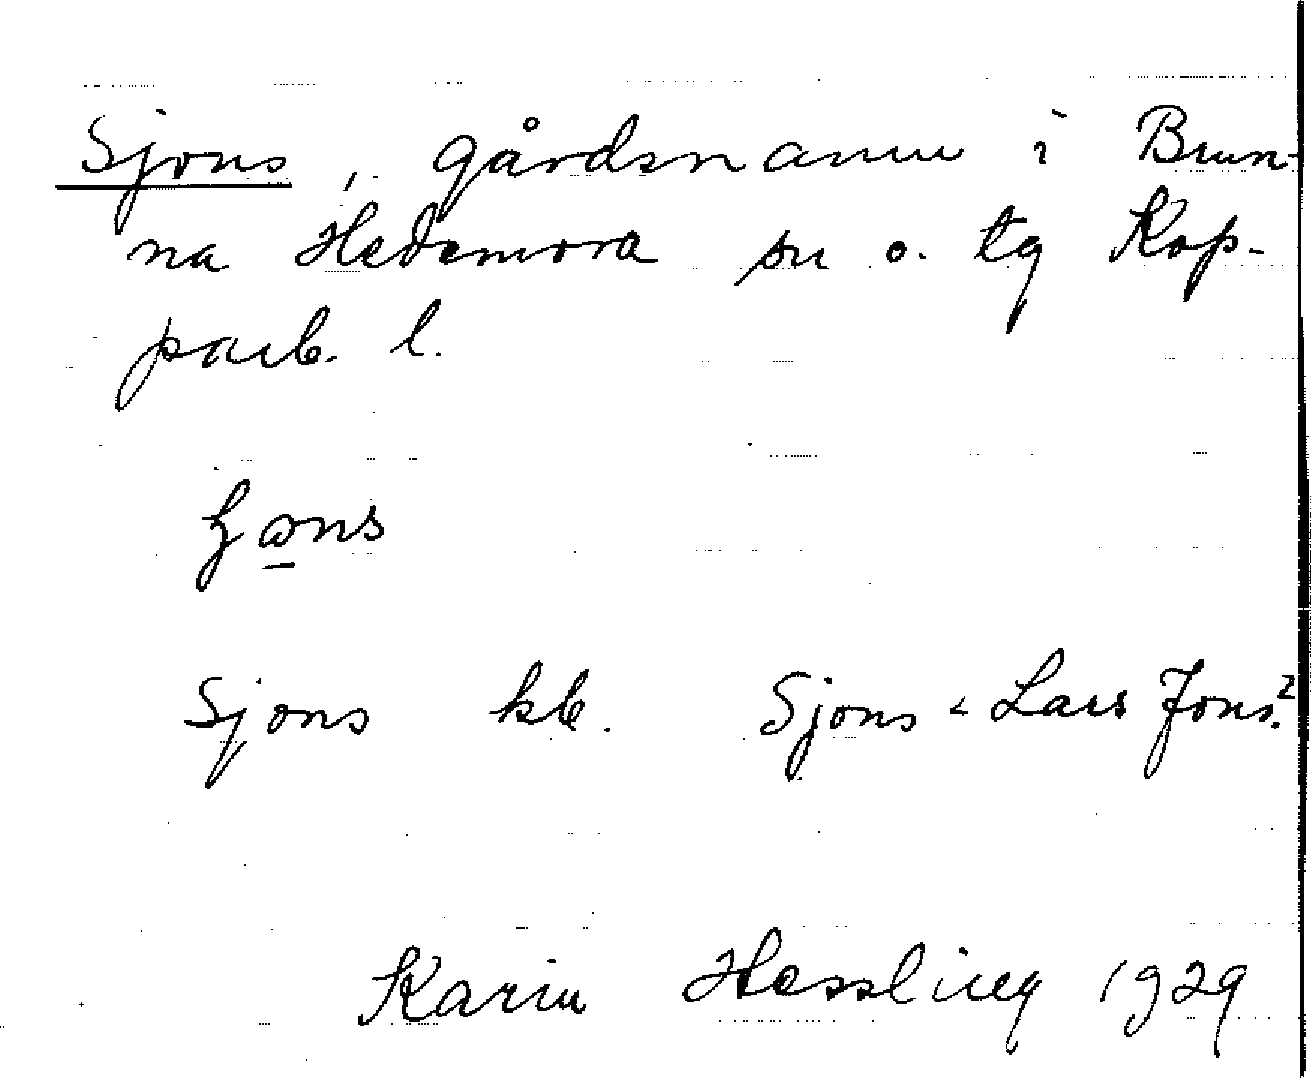 Sjons, gårdsnamn i Brun-
na Hedemora sn o. tg Kop-
parb. l.
Sjons kb. Sjons < Lars Jons?
Karin Hessling 1929